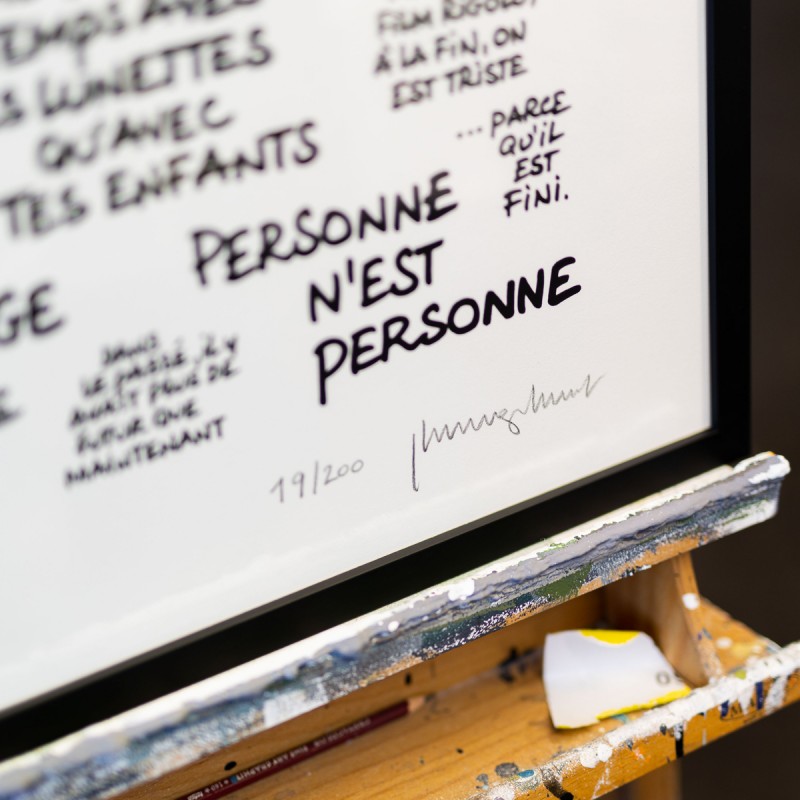 TEMPS AVEC
LUNETTES
QU'AVEC
TES ENFANTS
FILM RIGOLO,
À LA FIN, ON
EST TRISTE
... PARCE
QU'IL
EST
FINI.
PERSONNE
N'EST
PERSONNE
DANS
LE PASSÉ, IL Y
AVAIT PLUS DE
FUTUR QUE
MAINTENANT
19/200